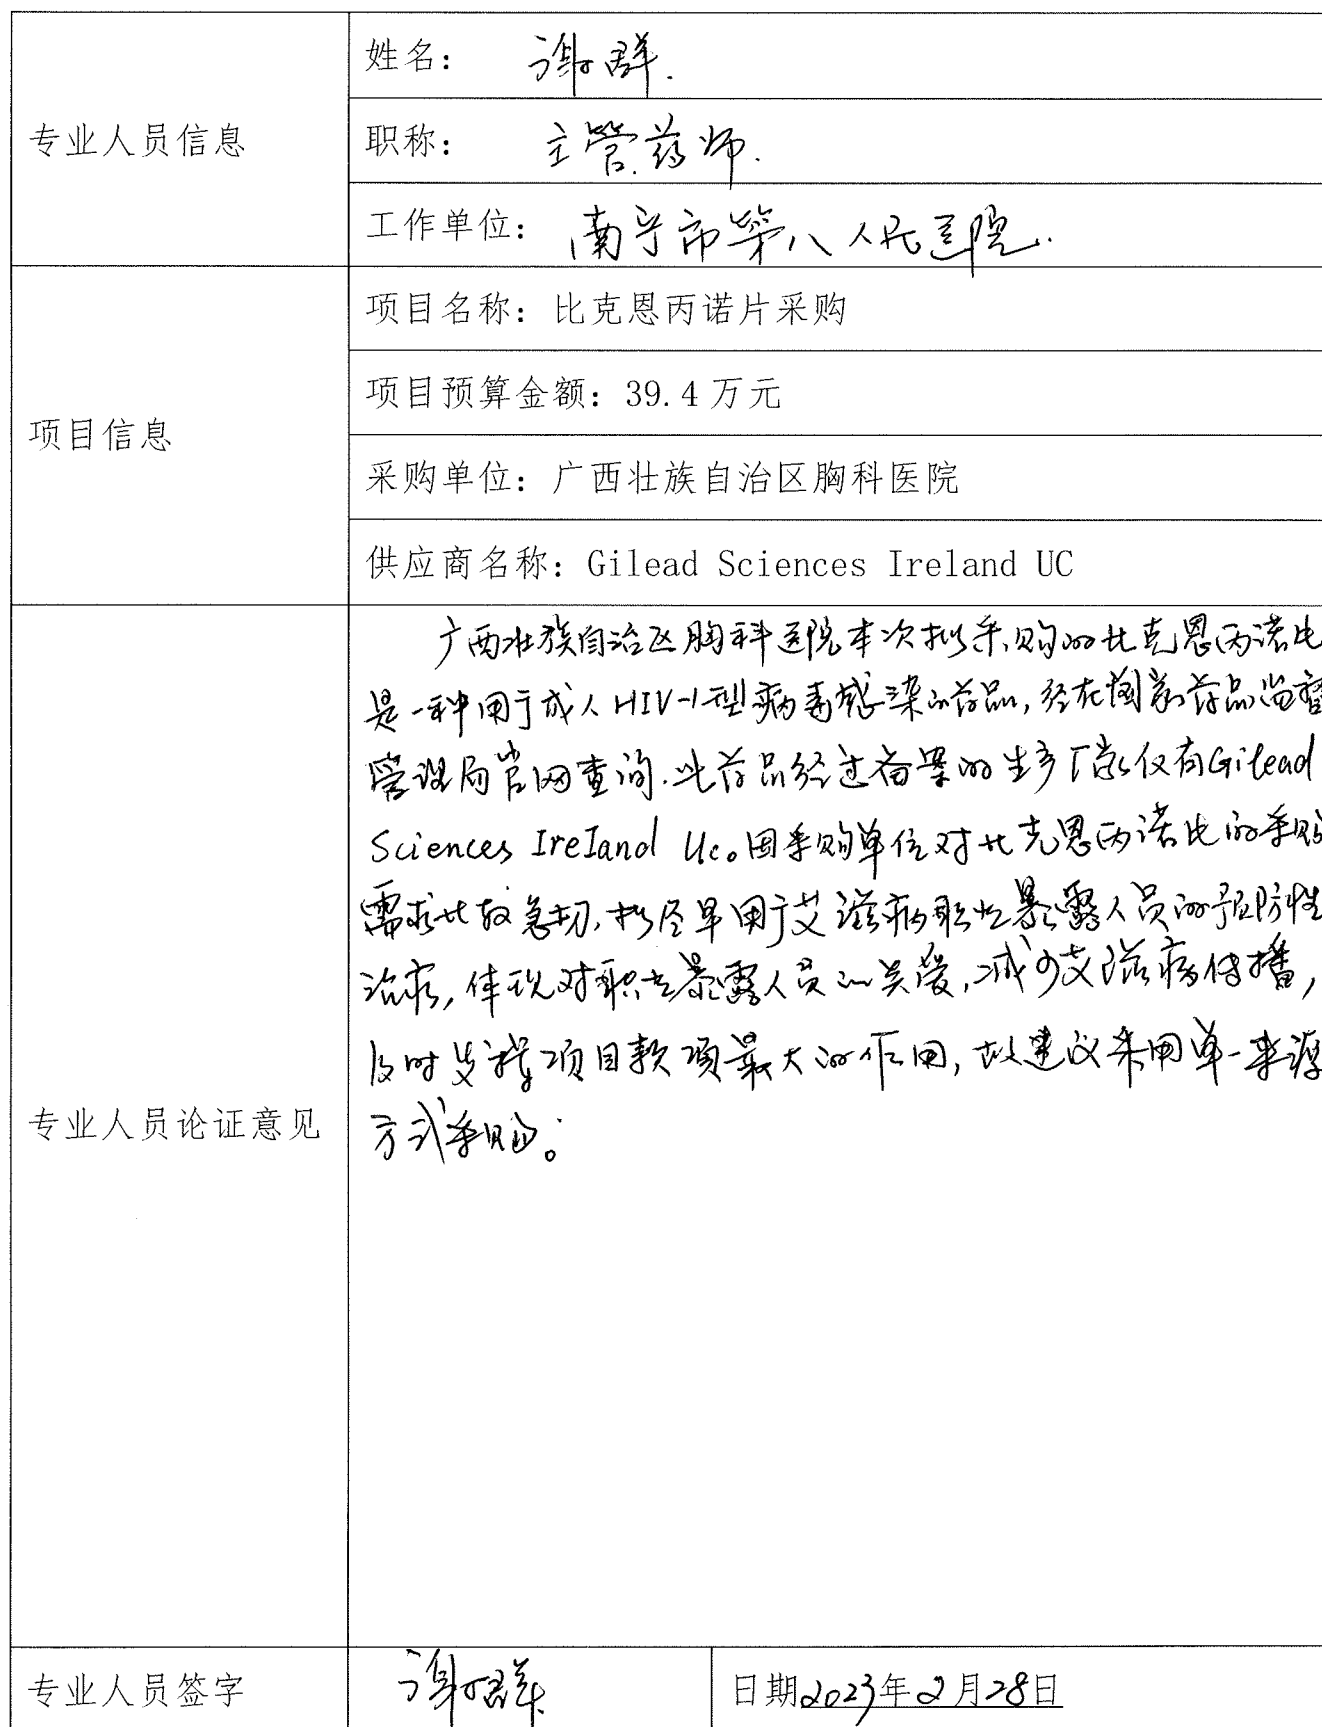 姓名： 谢群.
专业人员信息
职称： 主管药师.
工作单位： 南宁市第八人民医院.
项目名称：比克恩丙诺片采购
项目预算金额：39.4万元
项目信息
采购单位：广西壮族自治区胸科医院
供应商名称：Gilead Sciences Ireland UC
广西壮族自治区胸科医院本次拟采购的比克恩丙诺片
是一种用于成人HIV-1型病毒感染的药品,经在国家药品监督
管理局官网查询.此药品经过备案的生产厂家仅有Gilead
Sciences IreIand Uc。因采购单位对比克恩丙诺片的采购
需求比较急切,拟尽早用于艾滋病职业暴露人员的预防性
治疗,体现对职业暴露人员的关爱,减少艾滋病传播,
及时发挥项目款项最大的作用,故建议采用单一来源
专业人员论证意见
方式采购。
专业人员签字 谢群 日期2023年2月28日